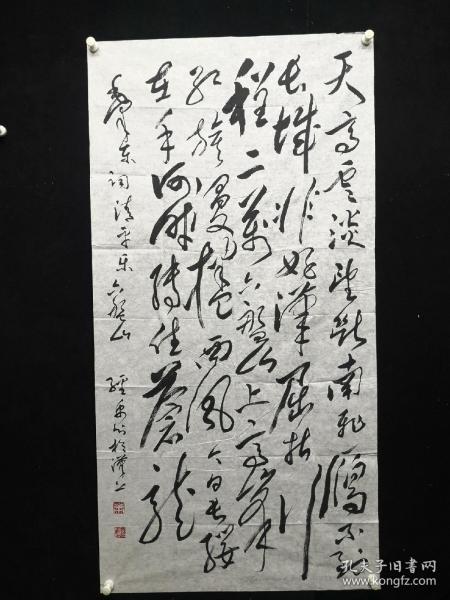 天高云淡望断南飞雁不到
长城非好汉屈指行
程二万六盘山上高峰
红旗漫卷西风今日长缨
在手何时缚住苍龙
毛泽东词清平乐六盘山
于汉上
孔夫子旧书网